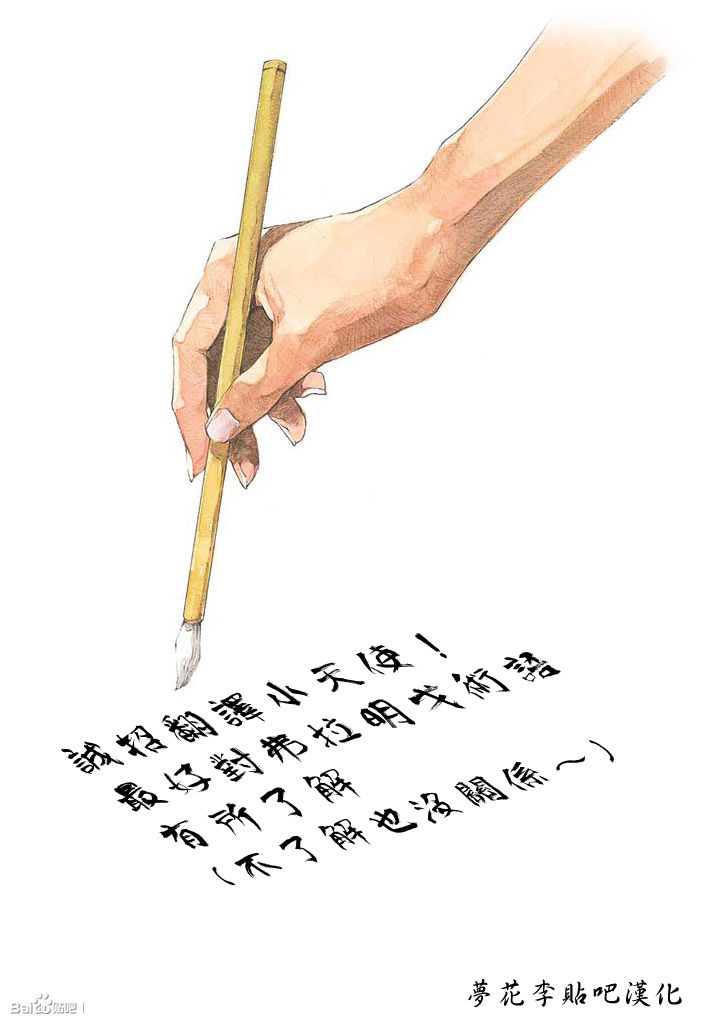 誠招翻譯小天使！
最好對弗拉明戈術語
有所了解
（不了解也沒關係～）
夢花李貼吧漢化
Bai贴吧